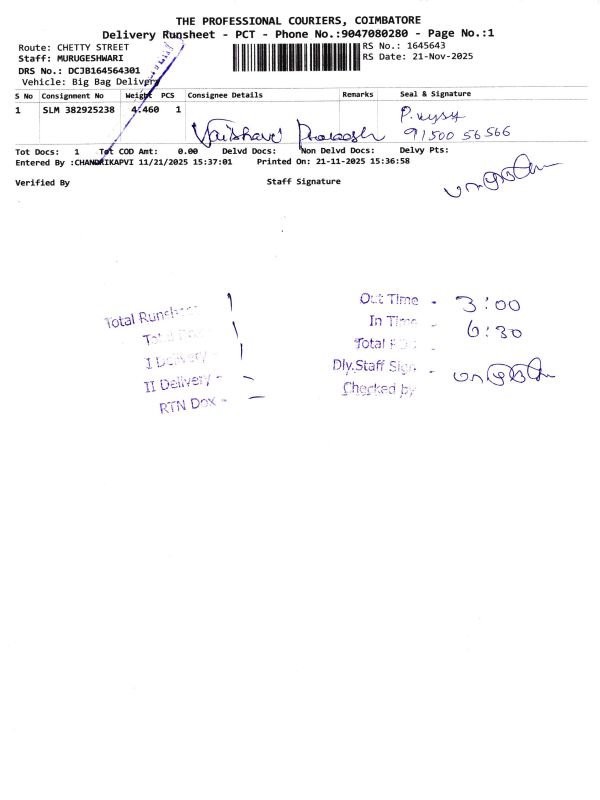 THE PROFESSIONAL COURIERS, COIMBATORE
Delivery Runsheet - PCT - Phone No.:9047080280 - Page No.:1
Route: CHETTY STREET RS No.: 1645643
Staff: MURUGESHWARI RS Date: 21-Nov-2025
DRS No.: DCJB164564301
Vehicle: Big Bag Delivery
S No Consignment No Weight PCS Consignee Details Remarks Seal & Signature
1 SLM 382925238 4.460 1 Vaishnavi Prakash
91500 56566
Tot Docs: 1 Tot COD Amt: 0.00 Delvd Docs: Non Delvd Docs: Delvy Pts:
Entered By :CHANDRIKAPVI 11/21/2025 15:37:01 Printed On: 21-11-2025 15:36:58
Verified By Staff Signature
Total Runsheet 1
Total 1
I Delivery - 1
II Delivery - -
RTN Dox - -
Out Time - 3:00
In Time - 6:30
Total POD -
Dly.Staff Sign -
Checked by